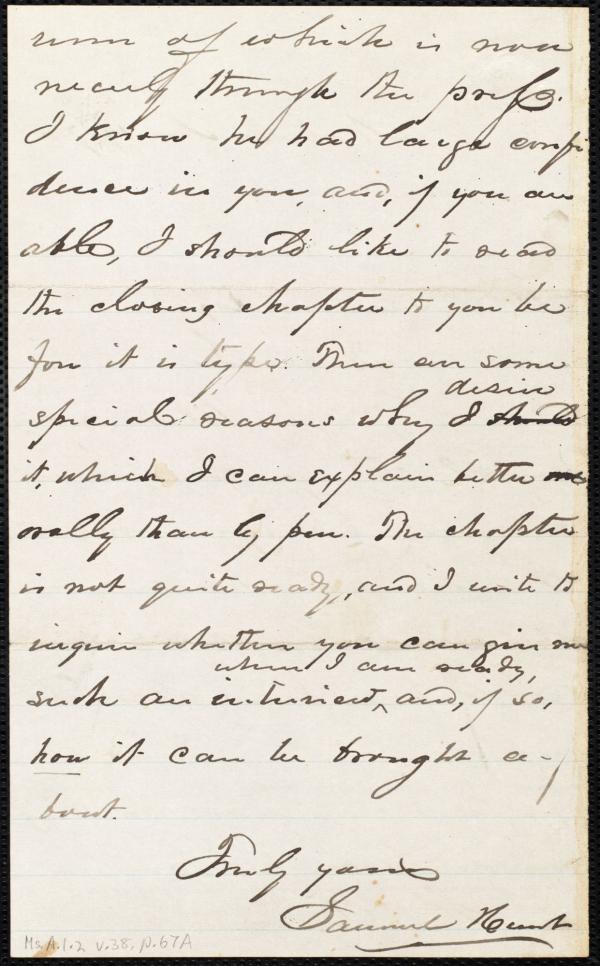 ume of which is now
nearly through the press.
I know he had large confi
dence in you, and, if you are
able, I should like to read
the closing chapter to you be
fore it is type. There are some
desire
special reasons why I should
it, which I can explain better
orally than by pen. The chapter
is not quite ready, and I write to
inquire whether you can give me
when I am ready,
such an interview, and, if so,
how it can be brought a-
bout.
Truly yours
Samuel Hunt
Ms. A.1.2 v.38, p.67A